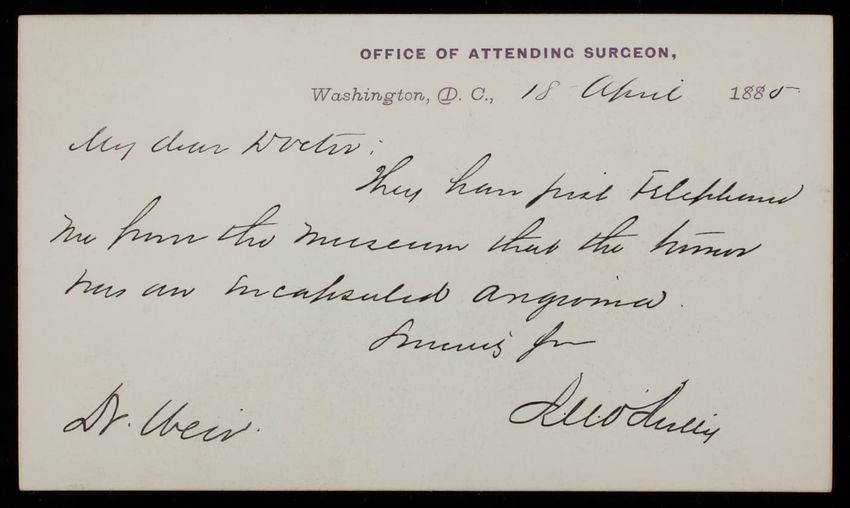 OFFICE OF ATTENDING SURGEON,
Washington, D. C., 18 April 1885
My dear Doctor:
They have just Telephoned
me from the museum that the tumor
was an Encapsuled Angioma.
Dr. Weir.